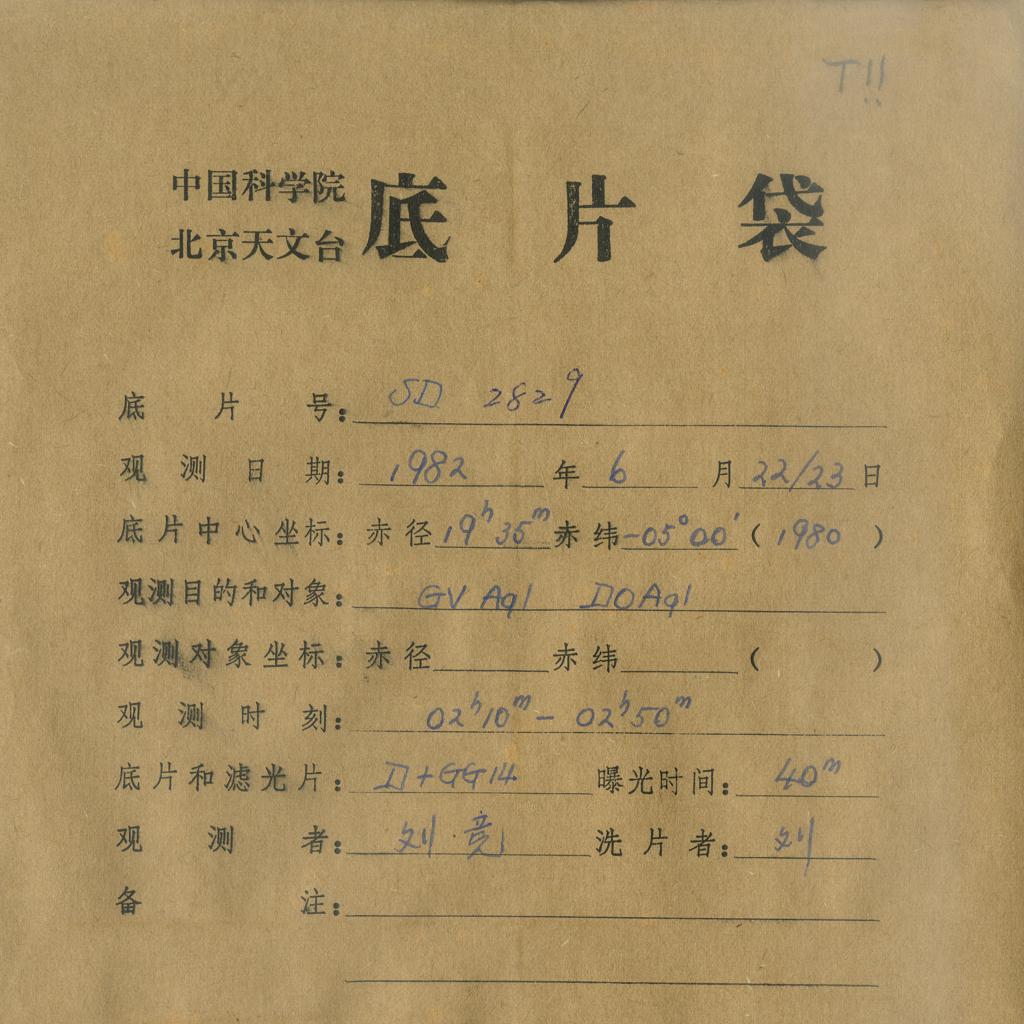 T!!
中国科学院
北京天文台
底片袋
底片号: SD 2829
观测日期: 1982 年 6 月 22/23 日
底片中心坐标: 赤径 19h 35m 赤纬 -05°00′ ( 1980 )
观测目的和对象: GV Aql DO Aql
观测对象坐标: 赤径 赤纬 ( )
观测时刻: 02h10m - 02h50m
底片和滤光片: D+GG14 曝光时间: 40m
观测者: 刘·竞 洗片者: 刘
备注: